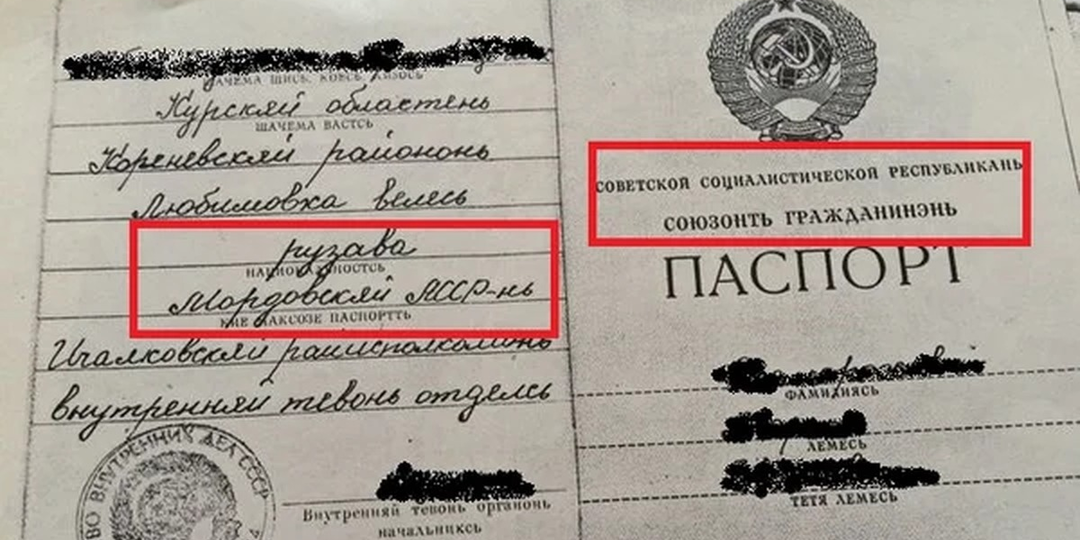 ШАЧЕМА ШИСЬ, КОВСЬ, КИЗОСЬ
Курскяй областень
ШАЧЕМА ВАСТСЬ
Кореневскяй райононь
Любимовка велесь
рузава
НАЦИОНАЛЬНОСТСЬ
Мордовскяй АССР-нь
КИЕ МАКСОЗЕ ПАСПОРТТЬ
Ичалковскяй райисполкомонь
внутренняй тевонь отделсь
ВНУТРЕННИХ ДЕЛ СССР
Внутренняй тевонь органонь
начальниксь
СОВЕТСКОЙ СОЦИАЛИСТИЧЕСКОЙ РЕСПУБЛИКАНЬ
СОЮЗОНТЬ ГРАЖДАНИНЭНЬ
ПАСПОРТ
ФАМИЛИЯСЬ
ЛЕМЕСЬ
ТЕТЯ ЛЕМЕСЬ